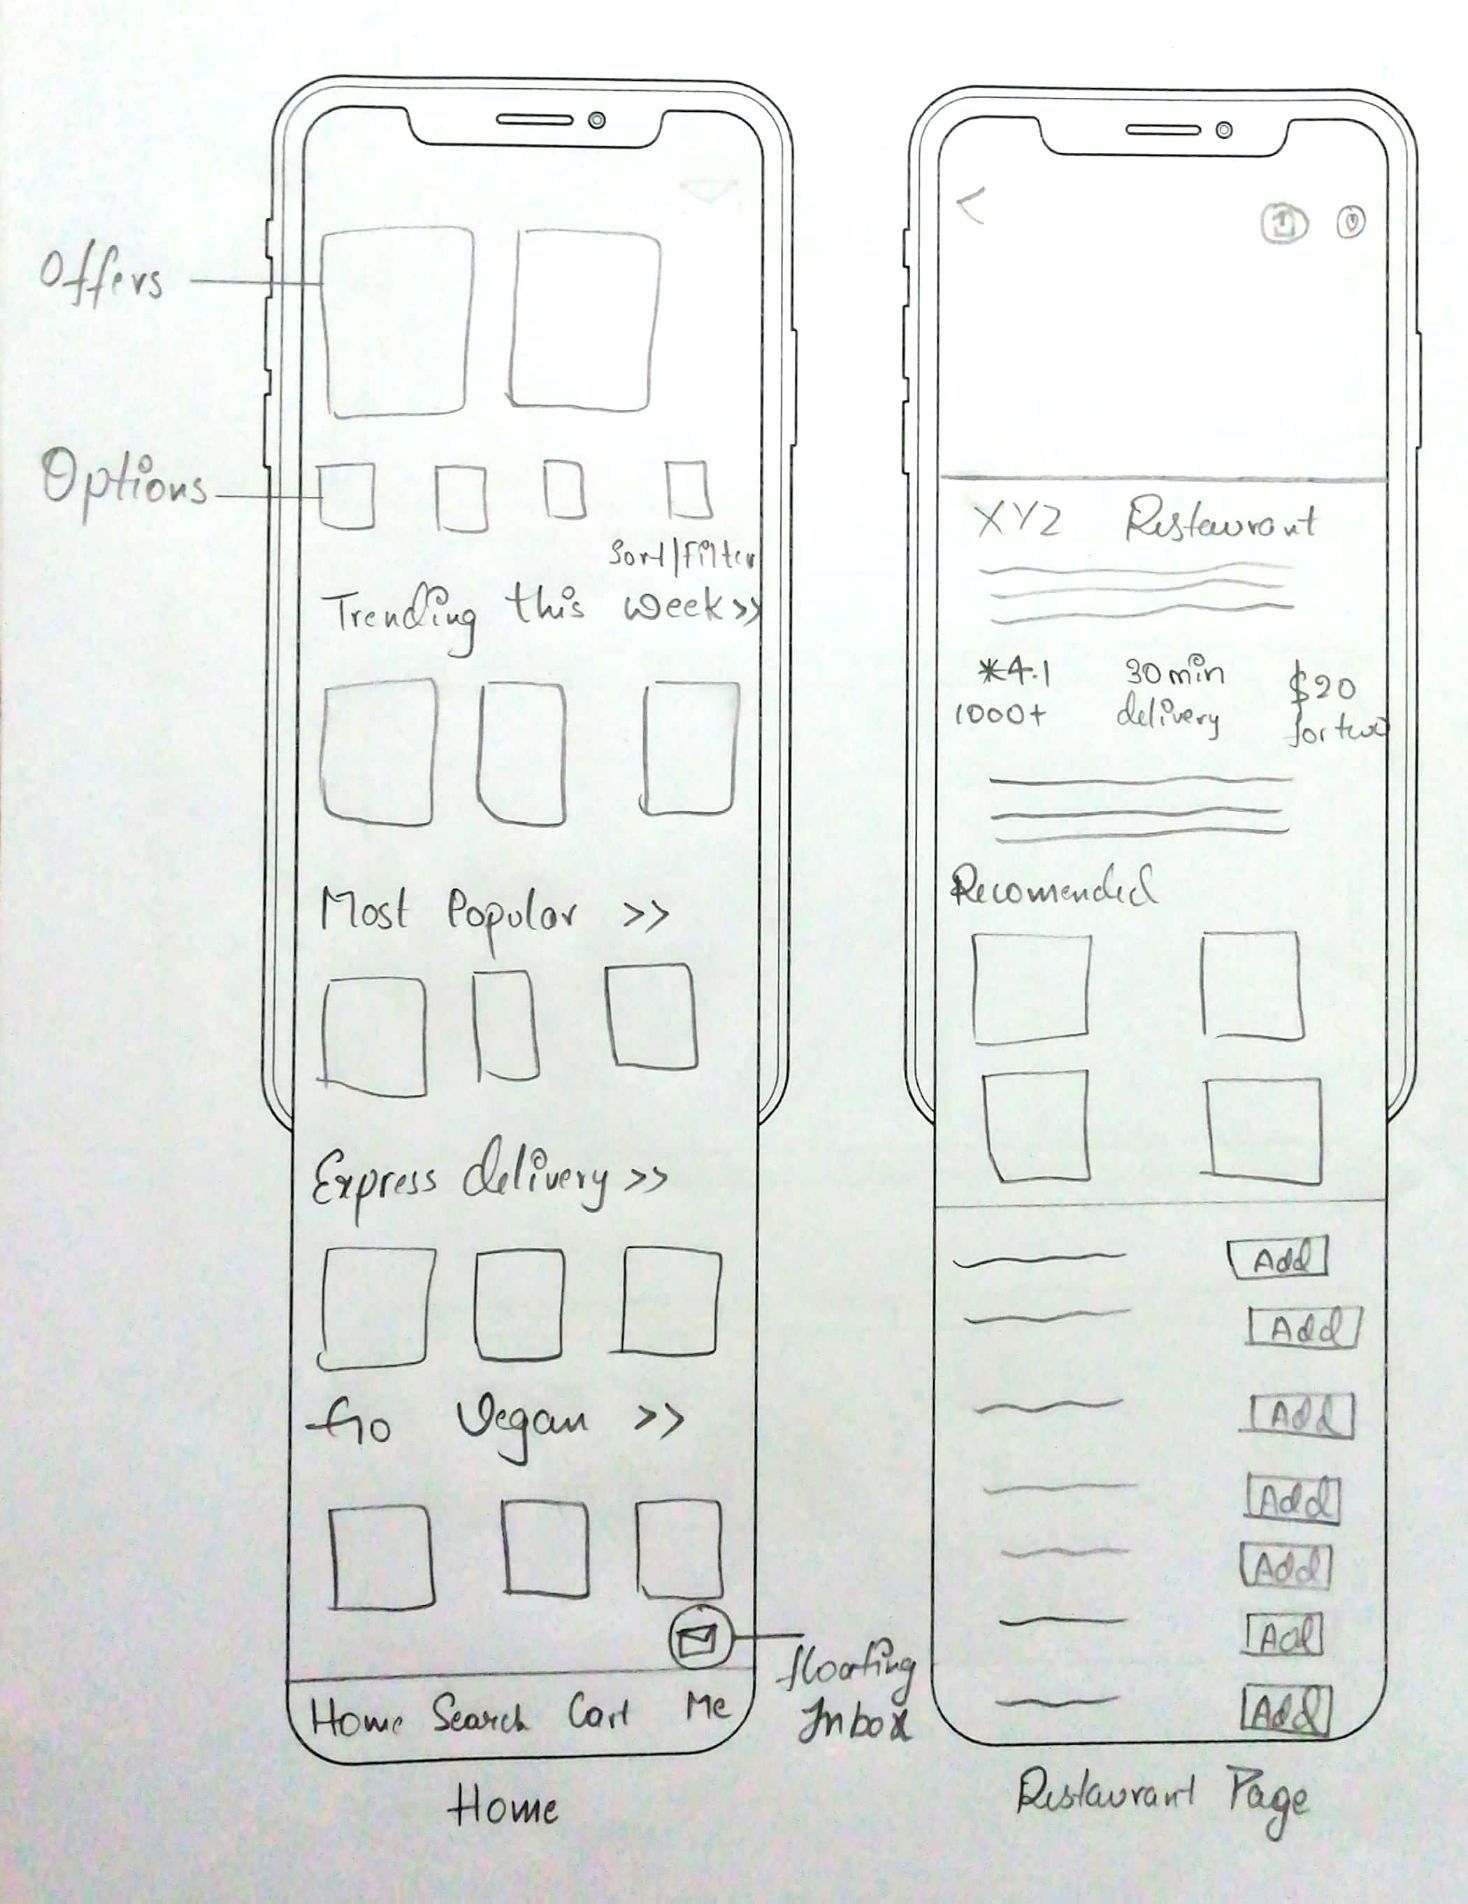 Offers
Options
Sort/Filter
Trending this week >>
Most Popular >>
Express delivery >>
Go Vegan >>
floating
Inbox
Home Search Cart Me
Home
<
XYZ Restaurant
*4.1
1000+
30 min
delivery
$20
for two
Recomended
Add
Add
Add
Add
Add
Add
Add
Restaurant Page